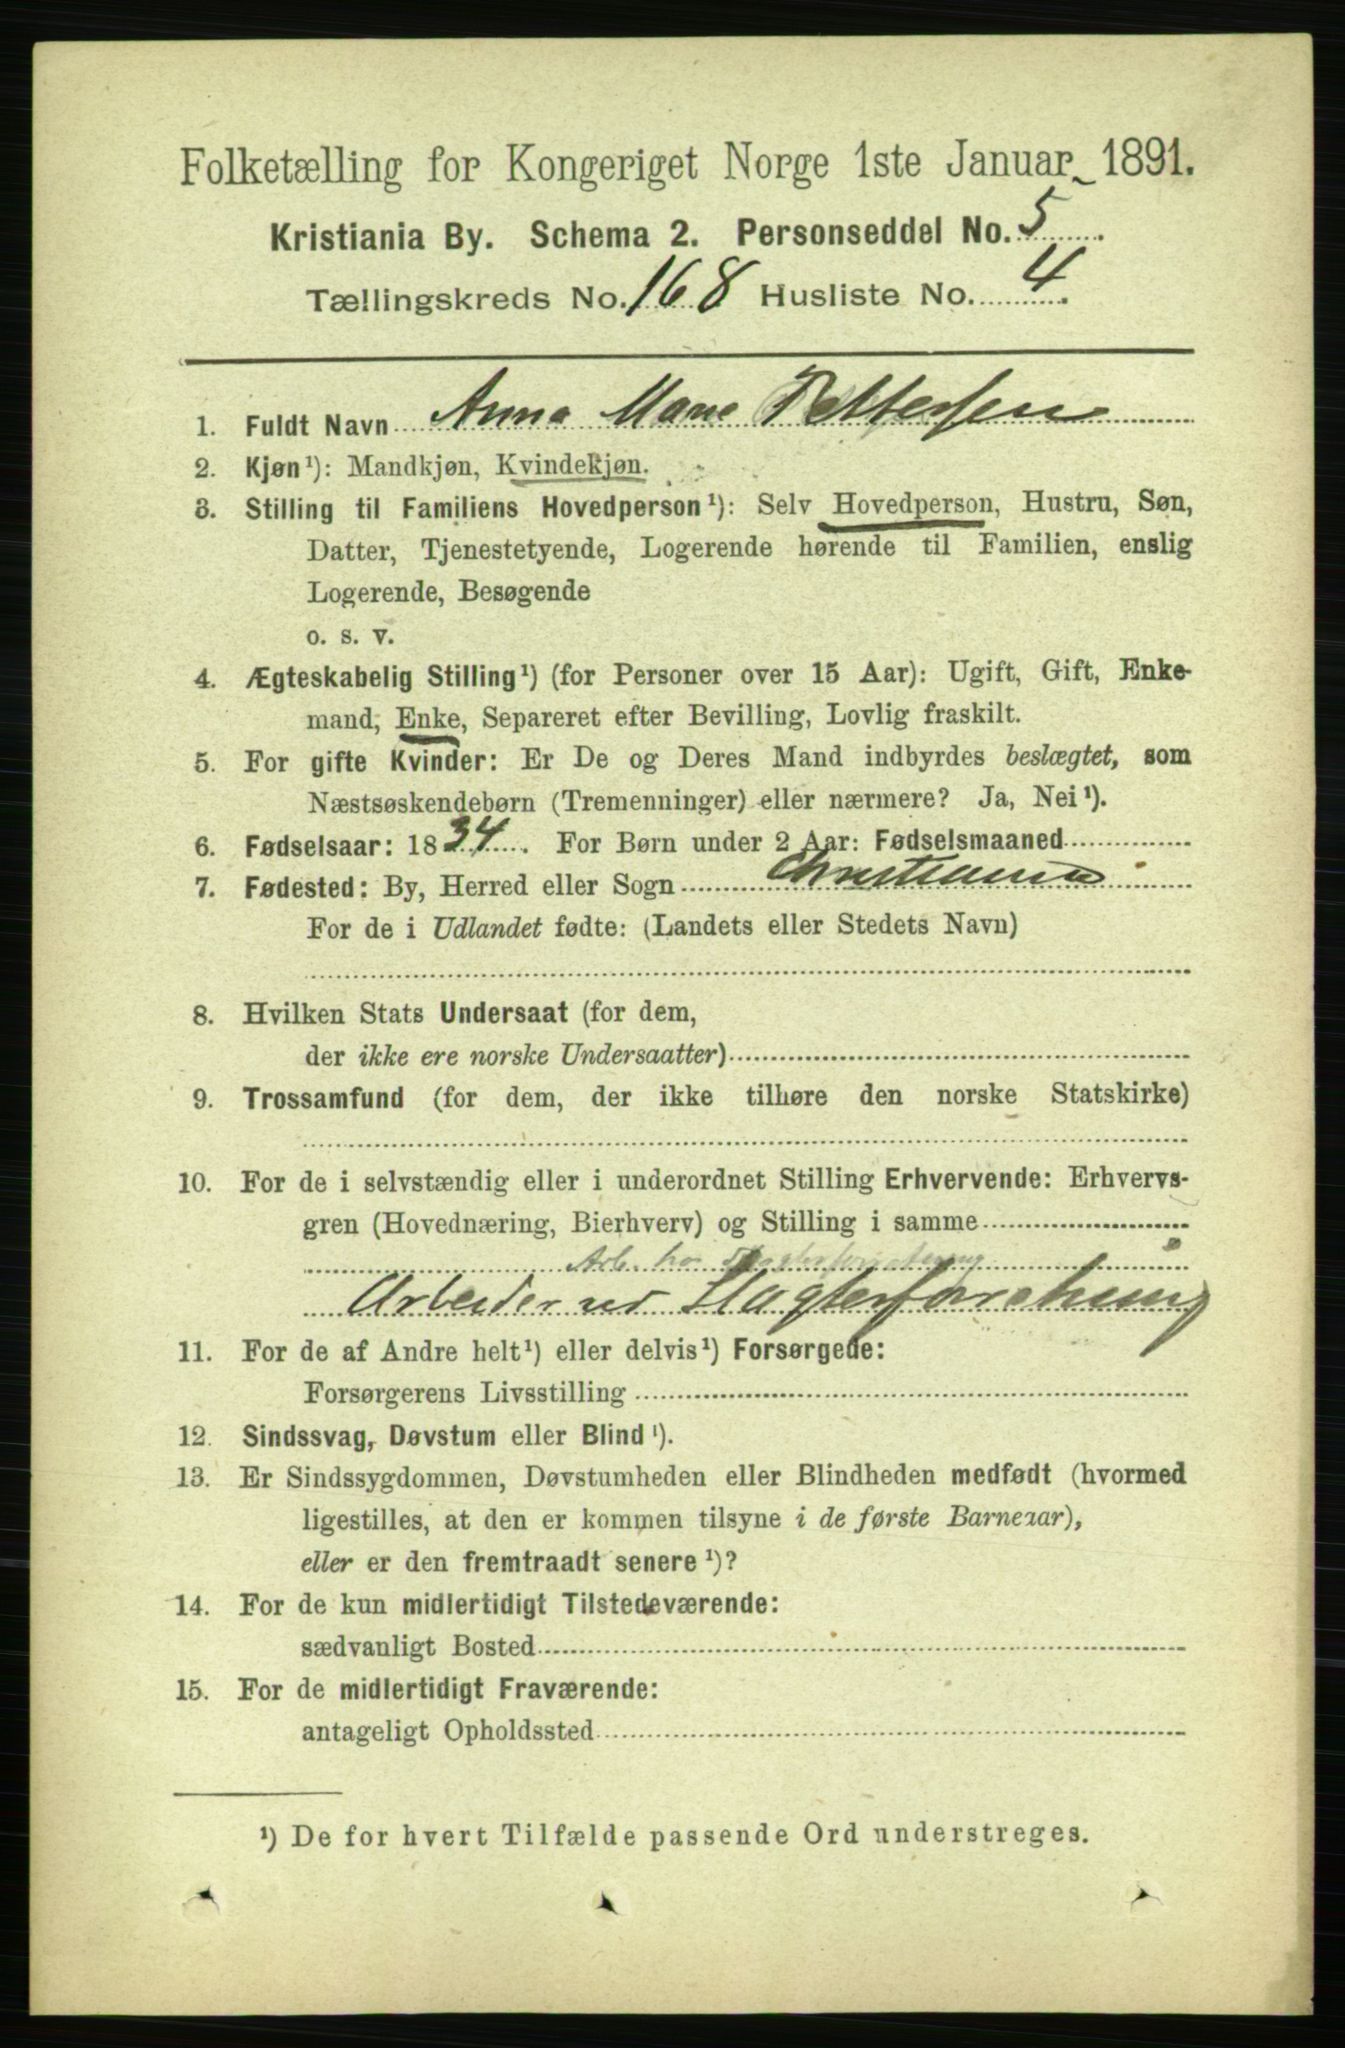 Folketælling for Kongeriget Norge 1ste Januar 1891.
Kristiania By. Schema 2. Personseddel No. 5
Tællingskreds No. 168 Husliste No. 4.
1. Fuldt Navn Anna Marie Pettersen
2. Kjøn¹): Mandkjøn, Kvindekjøn.
3. Stilling til Familiens Hovedperson¹): Selv Hovedperson, Hustru, Søn,
Datter, Tjenestetyende, Logerende hørende til Familien, enslig
Logerende, Besøgende
o. s. v.
4. Ægteskabelig Stilling¹) (for Personer over 15 Aar): Ugift, Gift, Enke-
mand, Enke, Separeret efter Bevilling, Lovlig fraskilt.
5. For gifte Kvinder: Er De og Deres Mand indbyrdes beslægtet, som
Næstsøskendebørn (Tremenninger) eller nærmere? Ja, Nei¹).
6. Fødselsaar: 1834. For Børn under 2 Aar: Fødselsmaaned
7. Fødested: By, Herred eller Sogn Christiania
For de i Udlandet fødte: (Landets eller Stedets Navn)
8. Hvilken Stats Undersaat (for dem,
der ikke ere norske Undersaatter)
9. Trossamfund (for dem, der ikke tilhøre den norske Statskirke)
10. For de i selvstændig eller i underordnet Stilling Erhvervende: Erhvervs-
gren (Hovednæring, Bierhverv) og Stilling i samme
Arb. hos
Arbeider ved
11. For de af Andre helt¹) eller delvis¹) Forsørgede:
Forsørgerens Livsstilling
12. Sindssvag, Døvstum eller Blind¹).
13. Er Sindssygdommen, Døvstumheden eller Blindheden medfødt (hvormed
ligestilles, at den er kommen tilsyne i de første Barneaar),
eller er den fremtraadt senere¹)?
14. For de kun midlertidigt Tilstedeværende:
sædvanligt Bosted
15. For de midlertidigt Fraværende:
antageligt Opholdssted
¹) De for hvert Tilfælde passende Ord understreges.